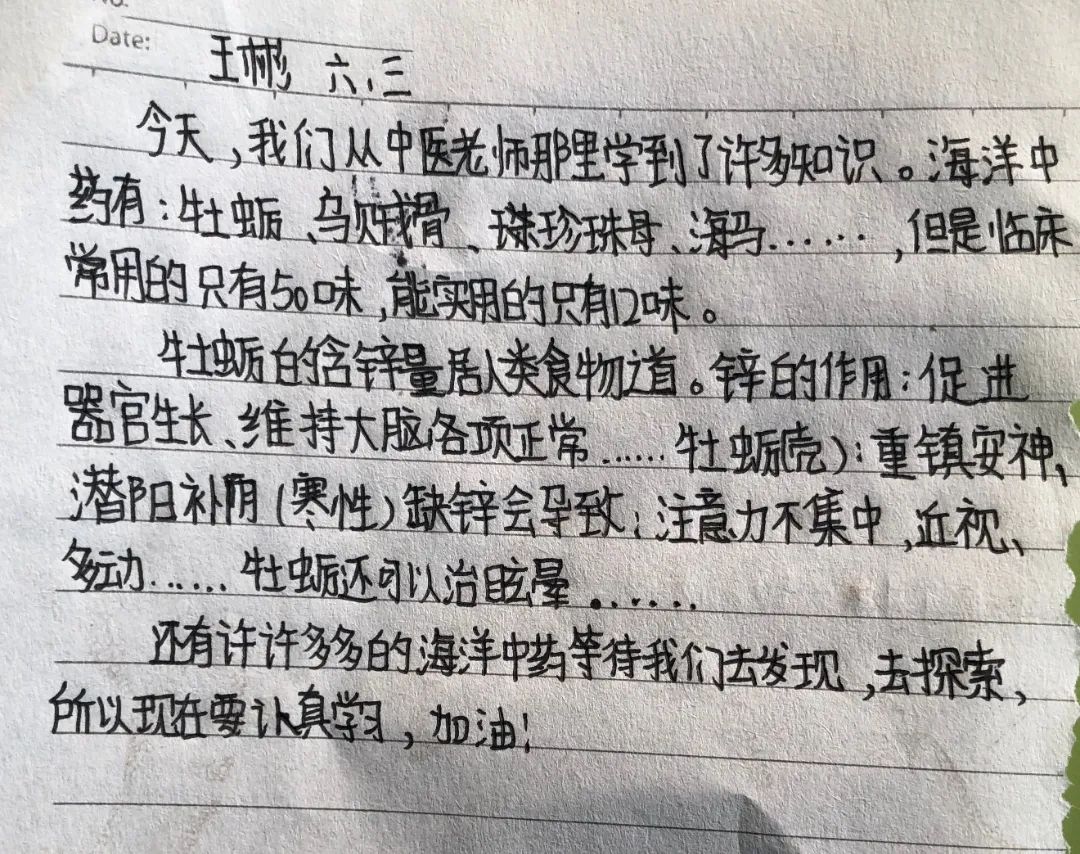 Date:
王彬 六、三
今天,我们从中医老师那里学到了许多知识。海洋中
药有:牡蛎、乌贼骨、珠珍珠母、海马……,但是临床
常用的只有50味,能实用的只有12味。
牡蛎的含锌量居人类食物之首。锌的作用:促进
器官生长、维持大脑各项正常……牡蛎(壳):重镇安神、
潜阳补阴(寒性)缺锌会导致:注意力不集中,近视、
多动……牡蛎还可以治眩晕。……
还有许许多多的海洋中药等待我们去发现,去探索,
所以现在要认真学习,加油!